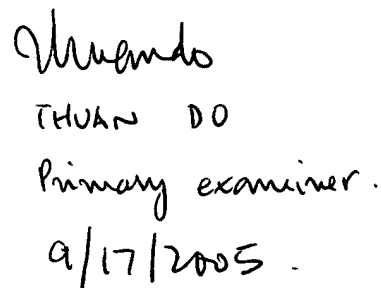 Thuando
THUAN DO
Primary examiner.
9/17/2005.